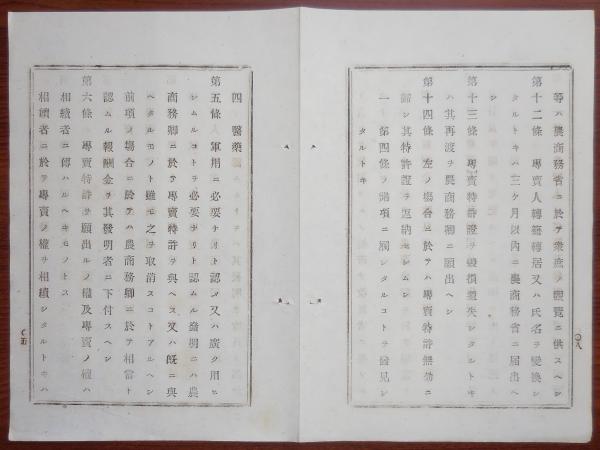 等ハ農商務省ニ於テ衆庶ノ觀覽ニ供スヘシ
第十二條 專賣人轉籍轉居又ハ氏名ヲ變換シ
タルトキハ三ケ月以內ニ農商務省ニ届出ヘ
シ
第十三條 專賣特許證ヲ毀損遺失シタルトキ
ハ其再渡ヲ農商務卿ニ願出ヘシ
第十四條 左ノ塲合ニ於テハ專賣特許無効ニ
歸シ其特許證ヲ返納セシムヘシ
一 第四條ノ諸項ニ觸シタルコトヲ發見シ
タルトキ
〇八
四 醫藥
第五條 軍用ニ必要ナリト認メ又ハ廣ク用ヒ
シムルコトヲ必要ナリト認ムル發明ニハ農
商務卿ニ於テ專賣特許ヲ與ヘス又ハ旣ニ與
ヘタルモノト雖モ之ヲ取消スコトアルヘシ
前項ノ塲合ニ於テハ農商務卿ニ於テ相當ト
認ムル報酬金ヲ其發明者ニ下付スヘシ
第六條 專賣特許ヲ願出ルノ權及專賣ノ權ハ
相續者ニ傳ハルヘキモノトス
相續者ニ於テ專賣ノ權ヲ相續シタルトキハ
〇五